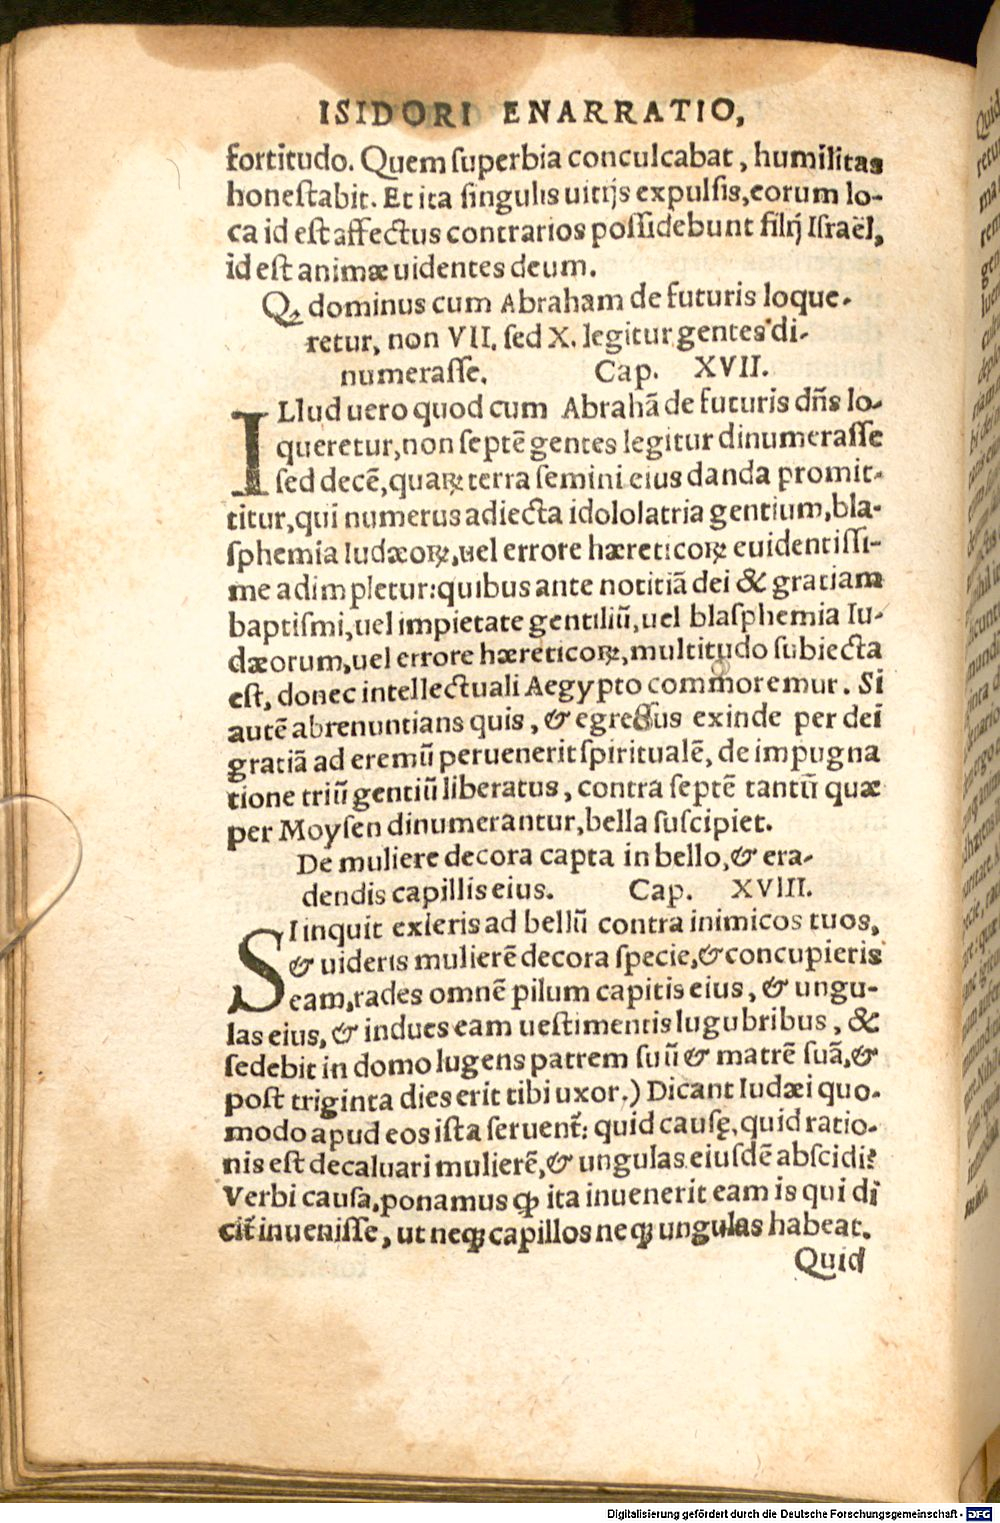 ISIDORI ENARRATIO,
fortitudo. Quem ſuperbia conculcabat, humilitas
honeſtabit. Et ita ſingulis uitijs expulſis, eorum lo-
ca id eſt affectus contrarios poſſidebunt filij Iſraël,
id eſt animæ uidentes deum.
Q; dominus cum Abraham de futuris loque-
retur, non VII. ſed X. legitur gentes di-
numeraſſe. Cap. XVII.
ILlud uero quod cum Abrahã de futuris dñs lo-
queretur, non ſeptẽ gentes legitur dinumeraſſe
ſed decẽ, quaꝝ terra ſemini eius danda promit-
titur, qui numerus adiecta idololatria gentium, bla-
ſphemia Iudæoꝝ, uel errore hæreticoꝝ euidentiſſi-
me adimpletur: quibus ante notitiã dei & gratiam
baptiſmi, uel impietate gentiliũ, uel blaſphemia Iu-
dæorum, uel errore hæreticoꝝ, multitudo ſubiecta
eſt, donec intellectuali Aegypto commoremur. Si
autẽ abrenuntians quis, & egreſſus exinde per dei
gratiã ad eremũ peruenerit ſpiritualẽ, de impugna
tione triũ gentiũ liberatus, contra ſeptẽ tantũ quæ
per Moyſen dinumerantur, bella ſuſcipiet.
De muliere decora capta in bello, & era-
dendis capillis eius. Cap. XVIII.
SI inquit exieris ad bellũ contra inimicos tuos,
& uideris mulierẽ decora ſpecie, & concupieris
eam, rades omnẽ pilum capitis eius, & ungu-
las eius, & indues eam ueſtimentis lugubribus, &
ſedebit in domo lugens patrem ſuũ & matrẽ ſuã, &
poſt triginta dies erit tibi uxor.) Dicant Iudæi quo-
modo apud eos iſta ſeruent̃: quid cauſę, quid ratio-
nis eſt decaluari mulierẽ, & ungulas eiuſdẽ abſcidi?
Verbi cauſa, ponamus ꝙ ita inuenerit eam is qui di
cit̃ inueniſſe, ut neqꝫ capillos neqꝫ ungulas habeat.
Quid
Digitalisierung gefördert durch die Deutsche Forschungsgemeinschaft - DFG